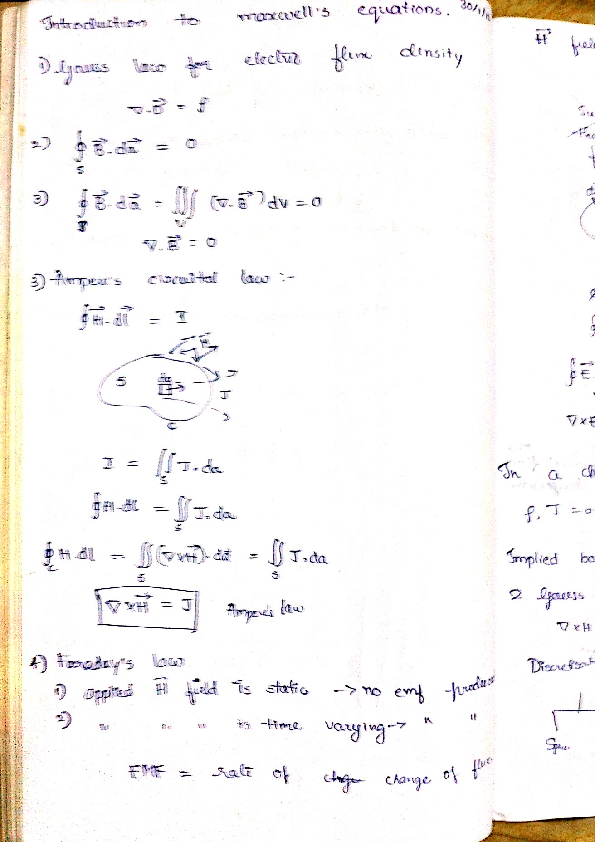 Introduction to maxwell's equations. 30/1/
1) Gauss law for electric flux density
∇.D⃗ = ρ
2) ∮_S B⃗.da⃗ = 0
3) ∮ B⃗.da⃗ = ∭_V (∇.B⃗) dv = 0
∇.B⃗ = 0
3) Amper's circuital law :-
∮H⃗.dl⃗ = I
H
S da J
C
I = ∬_S J.da
∮H.dl = ∬_S J.da
∮_C H.dl = ∬_S (∇×H⃗).da⃗ = ∬_S J.da
∇×H⃗ = J Amper's law
4) Faraday's law
1) applied H⃗ field is static -> no emf produce
2) " " " is time varying -> " "
EMF = rate of change of flux
H⃗
∮E⃗
∇×E
In a
ρ, J = 0
Implied
2 Gauss
∇×H